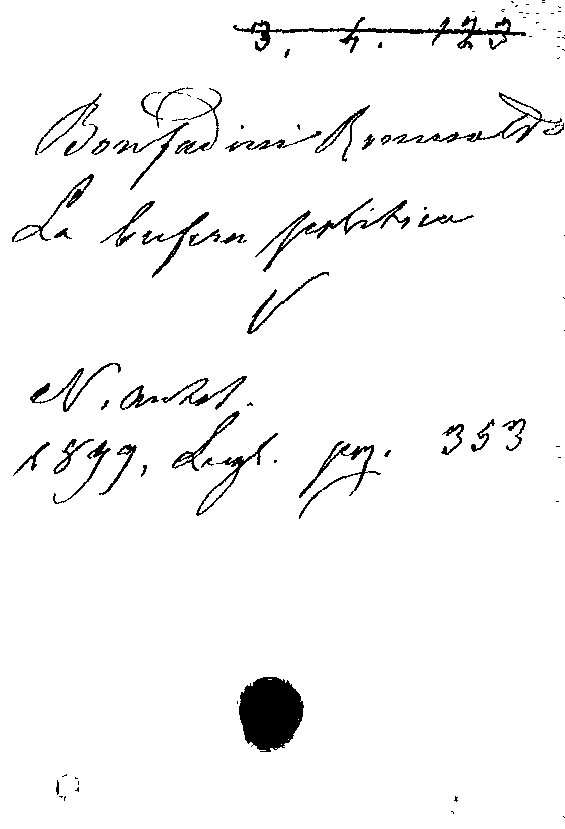 3. 4. 123
Bonfadini Romualdo
La bufera politica
V
N. antol.
1899, Lugl. pag. 353